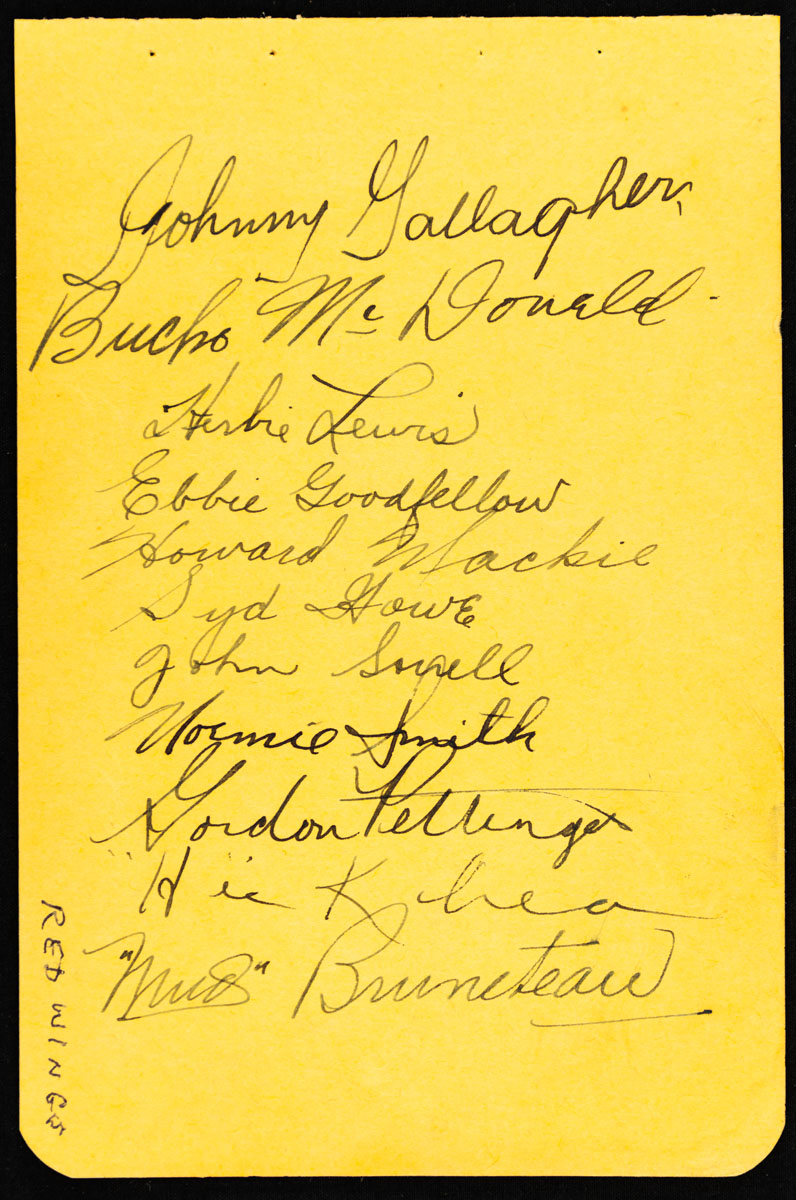 Johnny Gallagher
Bucko" McDonald
Herbie Lewis
Ebbie Goodfellow
Howard Mackie
Syd Howe
John Sorrell
Normie Smith
Gordon Pettinger
"Hec" Kilrea
"Mud" Bruneteau
RED WINGS